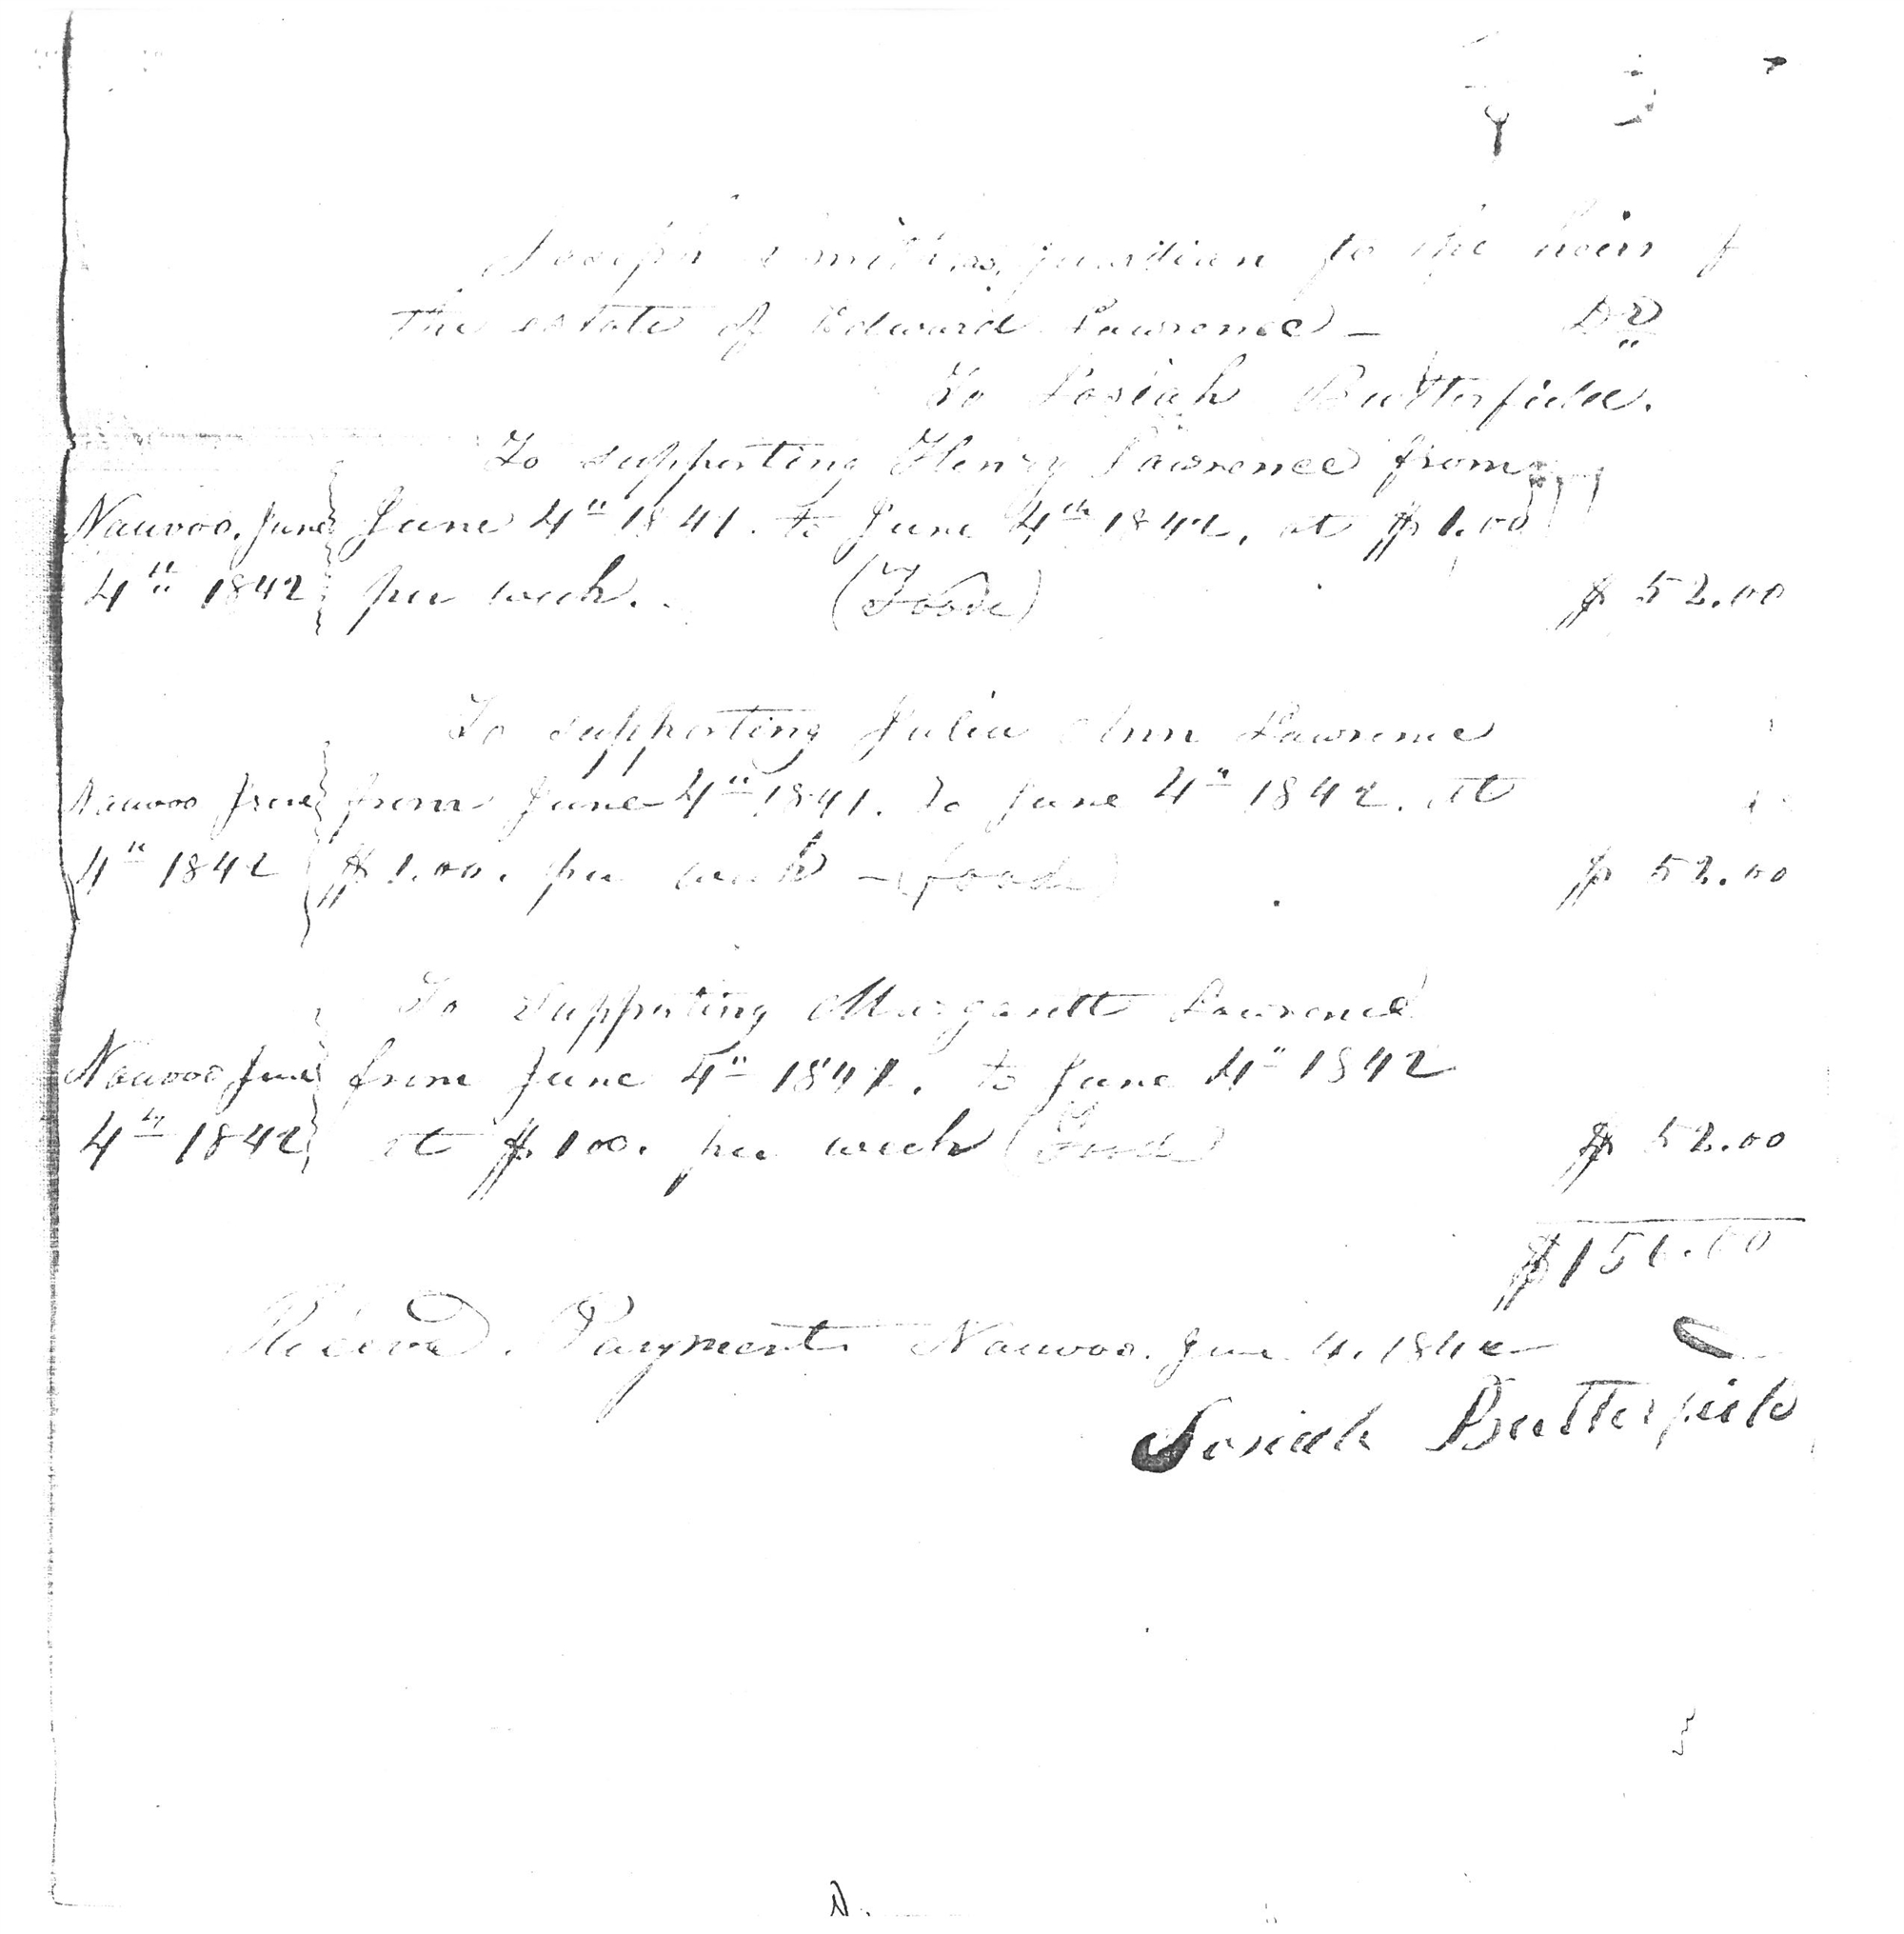 Joseph Smith, as, guardian to the heirs of
the estate of Edward Lawrence — Dr
To Josiah Butterfield.
To supporting Henry Lawrence from
Nauvoo. June June 4th 1841. to June 4th 1842, at $1.00
4th 1842 per week. (Food) $52.00
To supporting Julia Ann Lawrence
Nauvoo June from June 4th 1841. to June 4th 1842. at
4th 1842 $1.00. per week — (food) $52.00
To supporting Margarett Lawrence
Nauvoo June from June 4th 1841. to June 4th 1842
4th 1842 at $1 00. per week (Food) $52.00
$156.00
Received. Payment Nauvoo. June 4. 1842
Josiah Butterfield